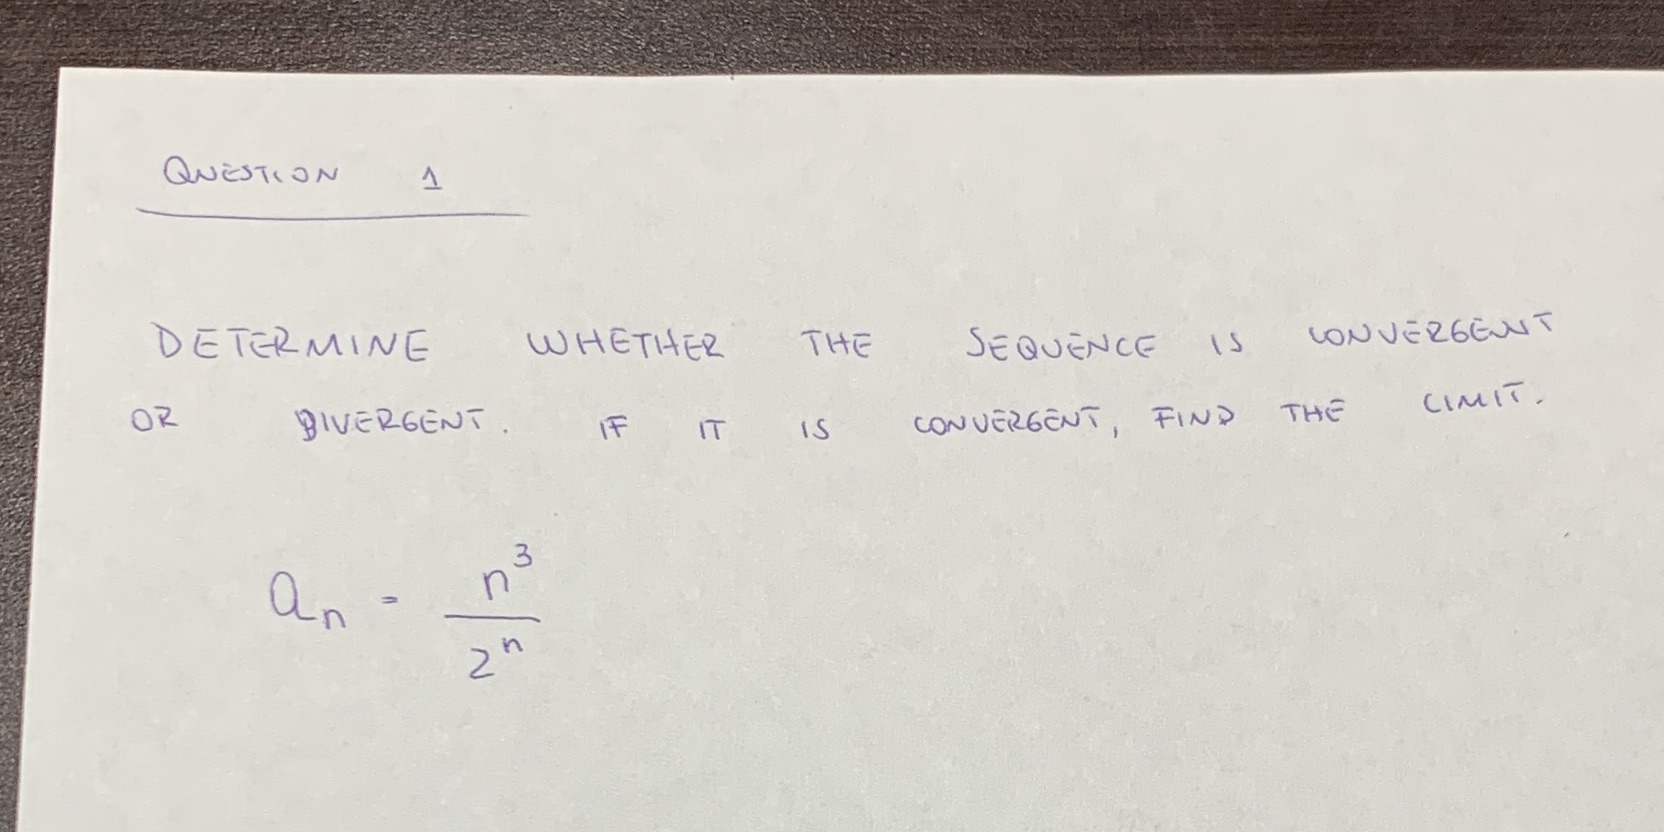 QUESTION 1
DETERMINE WHETHER THE SEQUENCE IS CONVERGENT
OR DIVERGENT. IF IT IS CONVERGENT, FIND THE LIMIT.
aₙ = n³/2ⁿ